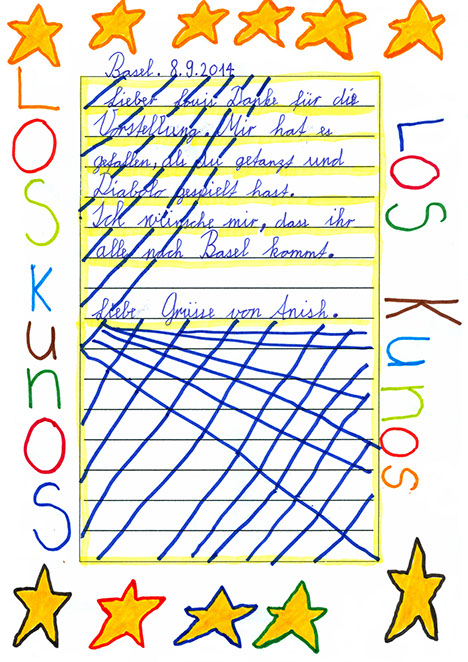 Basel. 8.9.2014
Lieber Danke für die
Vorstellung. Mir hat es
gefallen, als du getanzt und
Diabolo gespielt hast.
Ich wünsche mir, dass ihr
alle nach Basel kommt.
Liebe Grüsse von Anish.
LOS KunOS
LOS Kunos